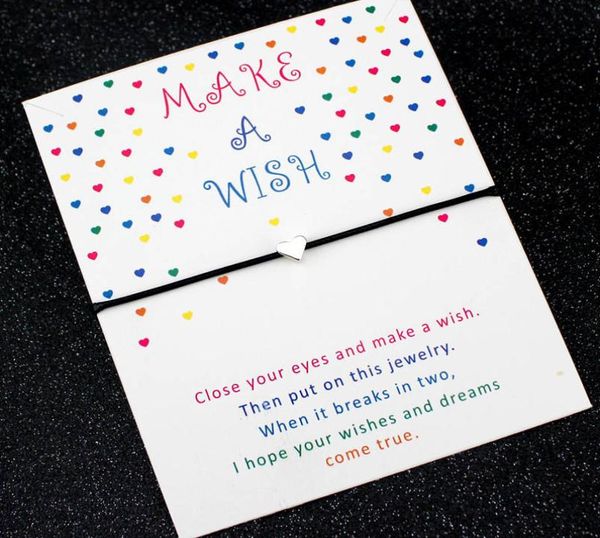 MAKE
A
WISH
Close your eyes and make a wish.
Then put on this jewelry.
When it breaks in two,
I hope your wishes and dreams
come true.